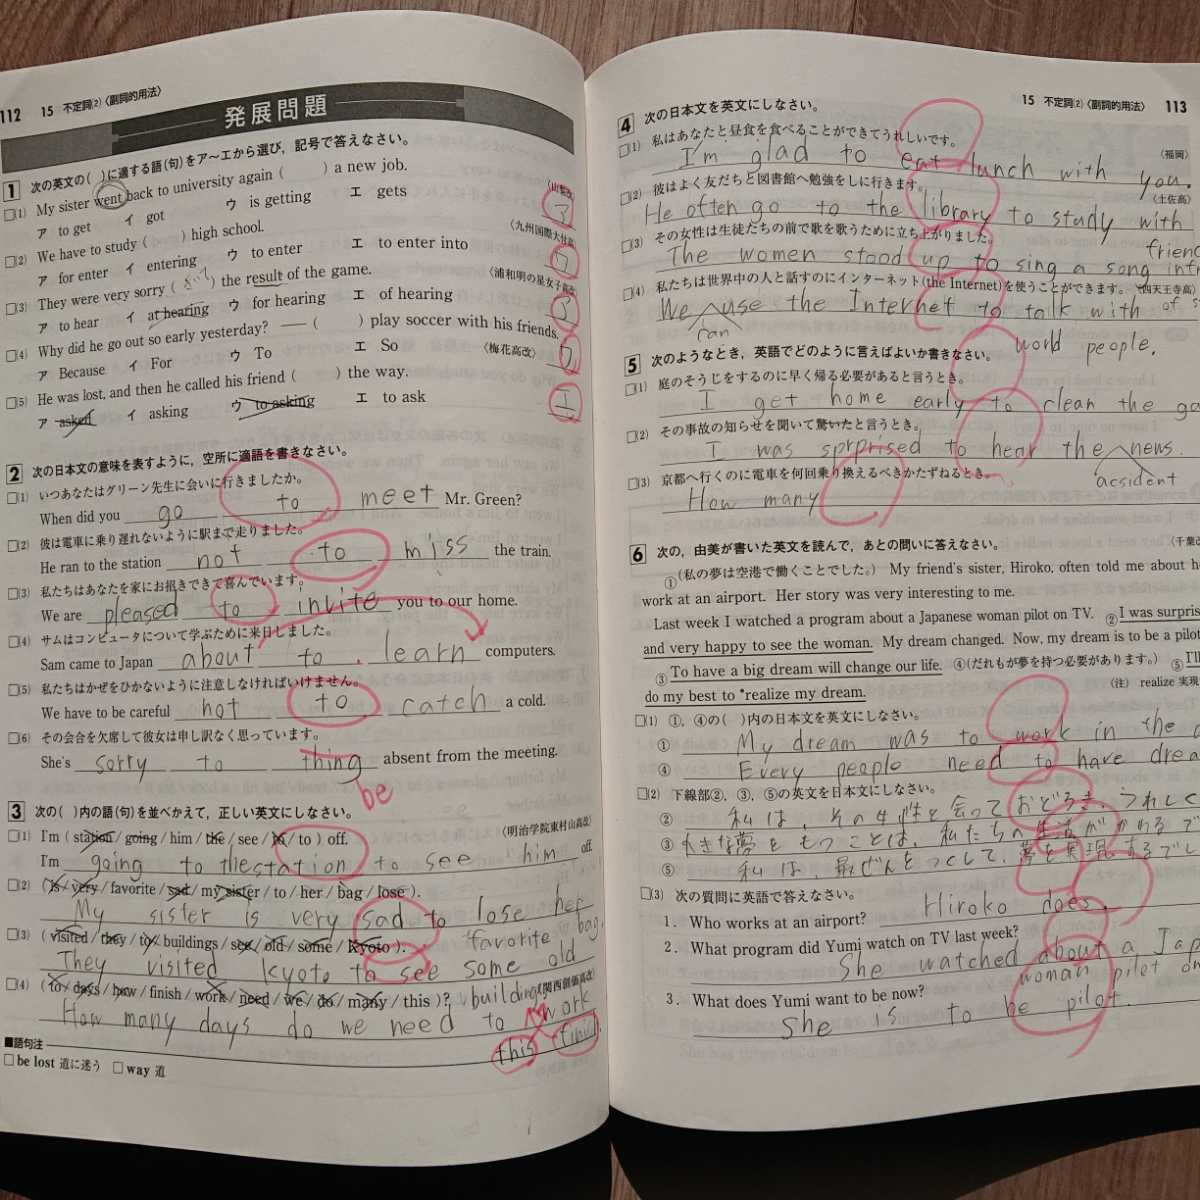 112 15 不定詞(2)〈副詞的用法〉
発展問題
1 次の英文の( )に適する語(句)をア〜エから選び，記号で答えなさい。
□(1) My sister went back to university again ( ) a new job.
ア to get イ got ウ is getting エ gets
□(2) We have to study ( ) high school. 〈九州国際大付高〉
ア for enter イ entering ウ to enter エ to enter into
□(3) They were very sorry ( ) the result of the game. 〈浦和明の星女子高改〉
ア to hear イ at hearing ウ for hearing エ of hearing
□(4) Why did he go out so early yesterday? ── ( ) play soccer with his friends.
ア Because イ For ウ To エ So 〈梅花高改〉
□(5) He was lost, and then he called his friend ( ) the way.
ア asked イ asking ウ to asking エ to ask
2 次の日本文の意味を表すように，空所に適語を書きなさい。
□(1) いつあなたはグリーン先生に会いに行きましたか。
When did you go to meet Mr. Green?
□(2) 彼は電車に乗り遅れないように駅まで走りました。
He ran to the station not to miss the train.
□(3) 私たちはあなたを家にお招きできて喜んでいます。
We are pleased to invite you to our home.
□(4) サムはコンピュータについて学ぶために来日しました。
Sam came to Japan about to learn computers.
□(5) 私たちはかぜをひかないように注意しなければいけません。
We have to be careful not to catch a cold.
□(6) その会合を欠席して彼女は申し訳なく思っています。
She's sorry to thing absent from the meeting.
be
3 次の( )内の語(句)を並べかえて，正しい英文にしなさい。
□(1) I'm ( station / going / him / the / see / to / to ) off. 〈明治学院東村山高改〉
I'm going to the station to see him off.
□(2) ( is / very / favorite / sad / my sister / to / her / bag / lose ).
My sister is very sad to lose her
favorite bag.
□(3) ( visited / they / to / buildings / see / old / some / Kyoto ).
They visited kyoto to see some old
building
□(4) ( to / days / how / finish / work / need / we / do / many / this )? 〈関西創価高改〉
How many days do we need to work
this finish
■語句注
□ be lost 道に迷う □ way 道
15 不定詞(2)〈副詞的用法〉 113
4 次の日本文を英文にしなさい。
□(1) 私はあなたと昼食を食べることができてうれしいです。 〈福岡〉
I'm glad to eat lunch with you.
□(2) 彼はよく友だちと図書館へ勉強をしに行きます。 〈土佐高〉
He often go to the library to study with
friend
□(3) その女性は生徒たちの前で歌を歌うために立ち上がりました。
The women stood up to sing a song
□(4) 私たちは世界中の人と話すのにインターネット(the Internet)を使うことができます。 〈四天王寺高〉
We use the Internet to talk with of
can
world people.
5 次のようなとき，英語でどのように言えばよいか書きなさい。
□(1) 庭のそうじをするのに早く帰る必要があると言うとき。
I get home early to clean the
□(2) その事故の知らせを聞いて驚いたと言うとき。
I was sprprised to hear the news.
acsident
□(3) 京都へ行くのに電車を何回乗り換えるべきかたずねるとき。
How many
6 次の，由美が書いた英文を読んで，あとの問いに答えなさい。
①(私の夢は空港で働くことでした。) My friend's sister, Hiroko, often told me about
work at an airport. Her story was very interesting to me.
Last week I watched a program about a Japanese woman pilot on TV. ②I was
and very happy to see the woman. My dream changed. Now, my dream is to be a
③To have a big dream will change our life. ④(だれもが夢を持つ必要があります。) ⑤I'll
do my best to *realize my dream. (注) realize 実現
□(1) ①，④の( )内の日本文を英文にしなさい。
① My dream was to work in the
④ Every people need to have
□(2) 下線部②，③，⑤の英文を日本文にしなさい。
② 私は，その女性と会っておどろき，うれしく
③ 大きな夢をもつことは，私たちの生活がかわるで
⑤ 私は，最ぜんをつくして，夢を実現するでし
□(3) 次の質問に英語で答えなさい。
1. Who works at an airport? Hiroko does.
2. What program did Yumi watch on TV last week?
She watched about a
woman pilot on
3. What does Yumi want to be now?
She is to be pilot.